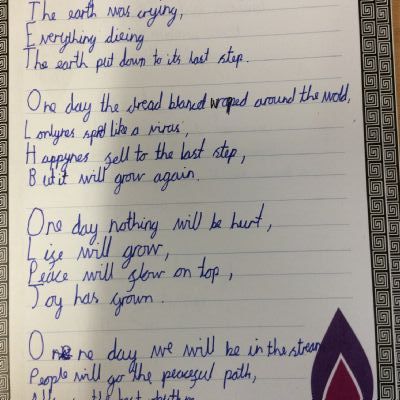 The earth was crying,
Everything dieing
The earth put down to its last step.
One day the dread blancd wroped around the world,
Lonlynes spred like a virus,
Happynes fell to the last step,
But it will grow again.
One day nothing will be hurt,
Life will grow,
Peace will flow on top,
Joy has grown.
One day we will be in the stream
People will go the peaceful path,
All the